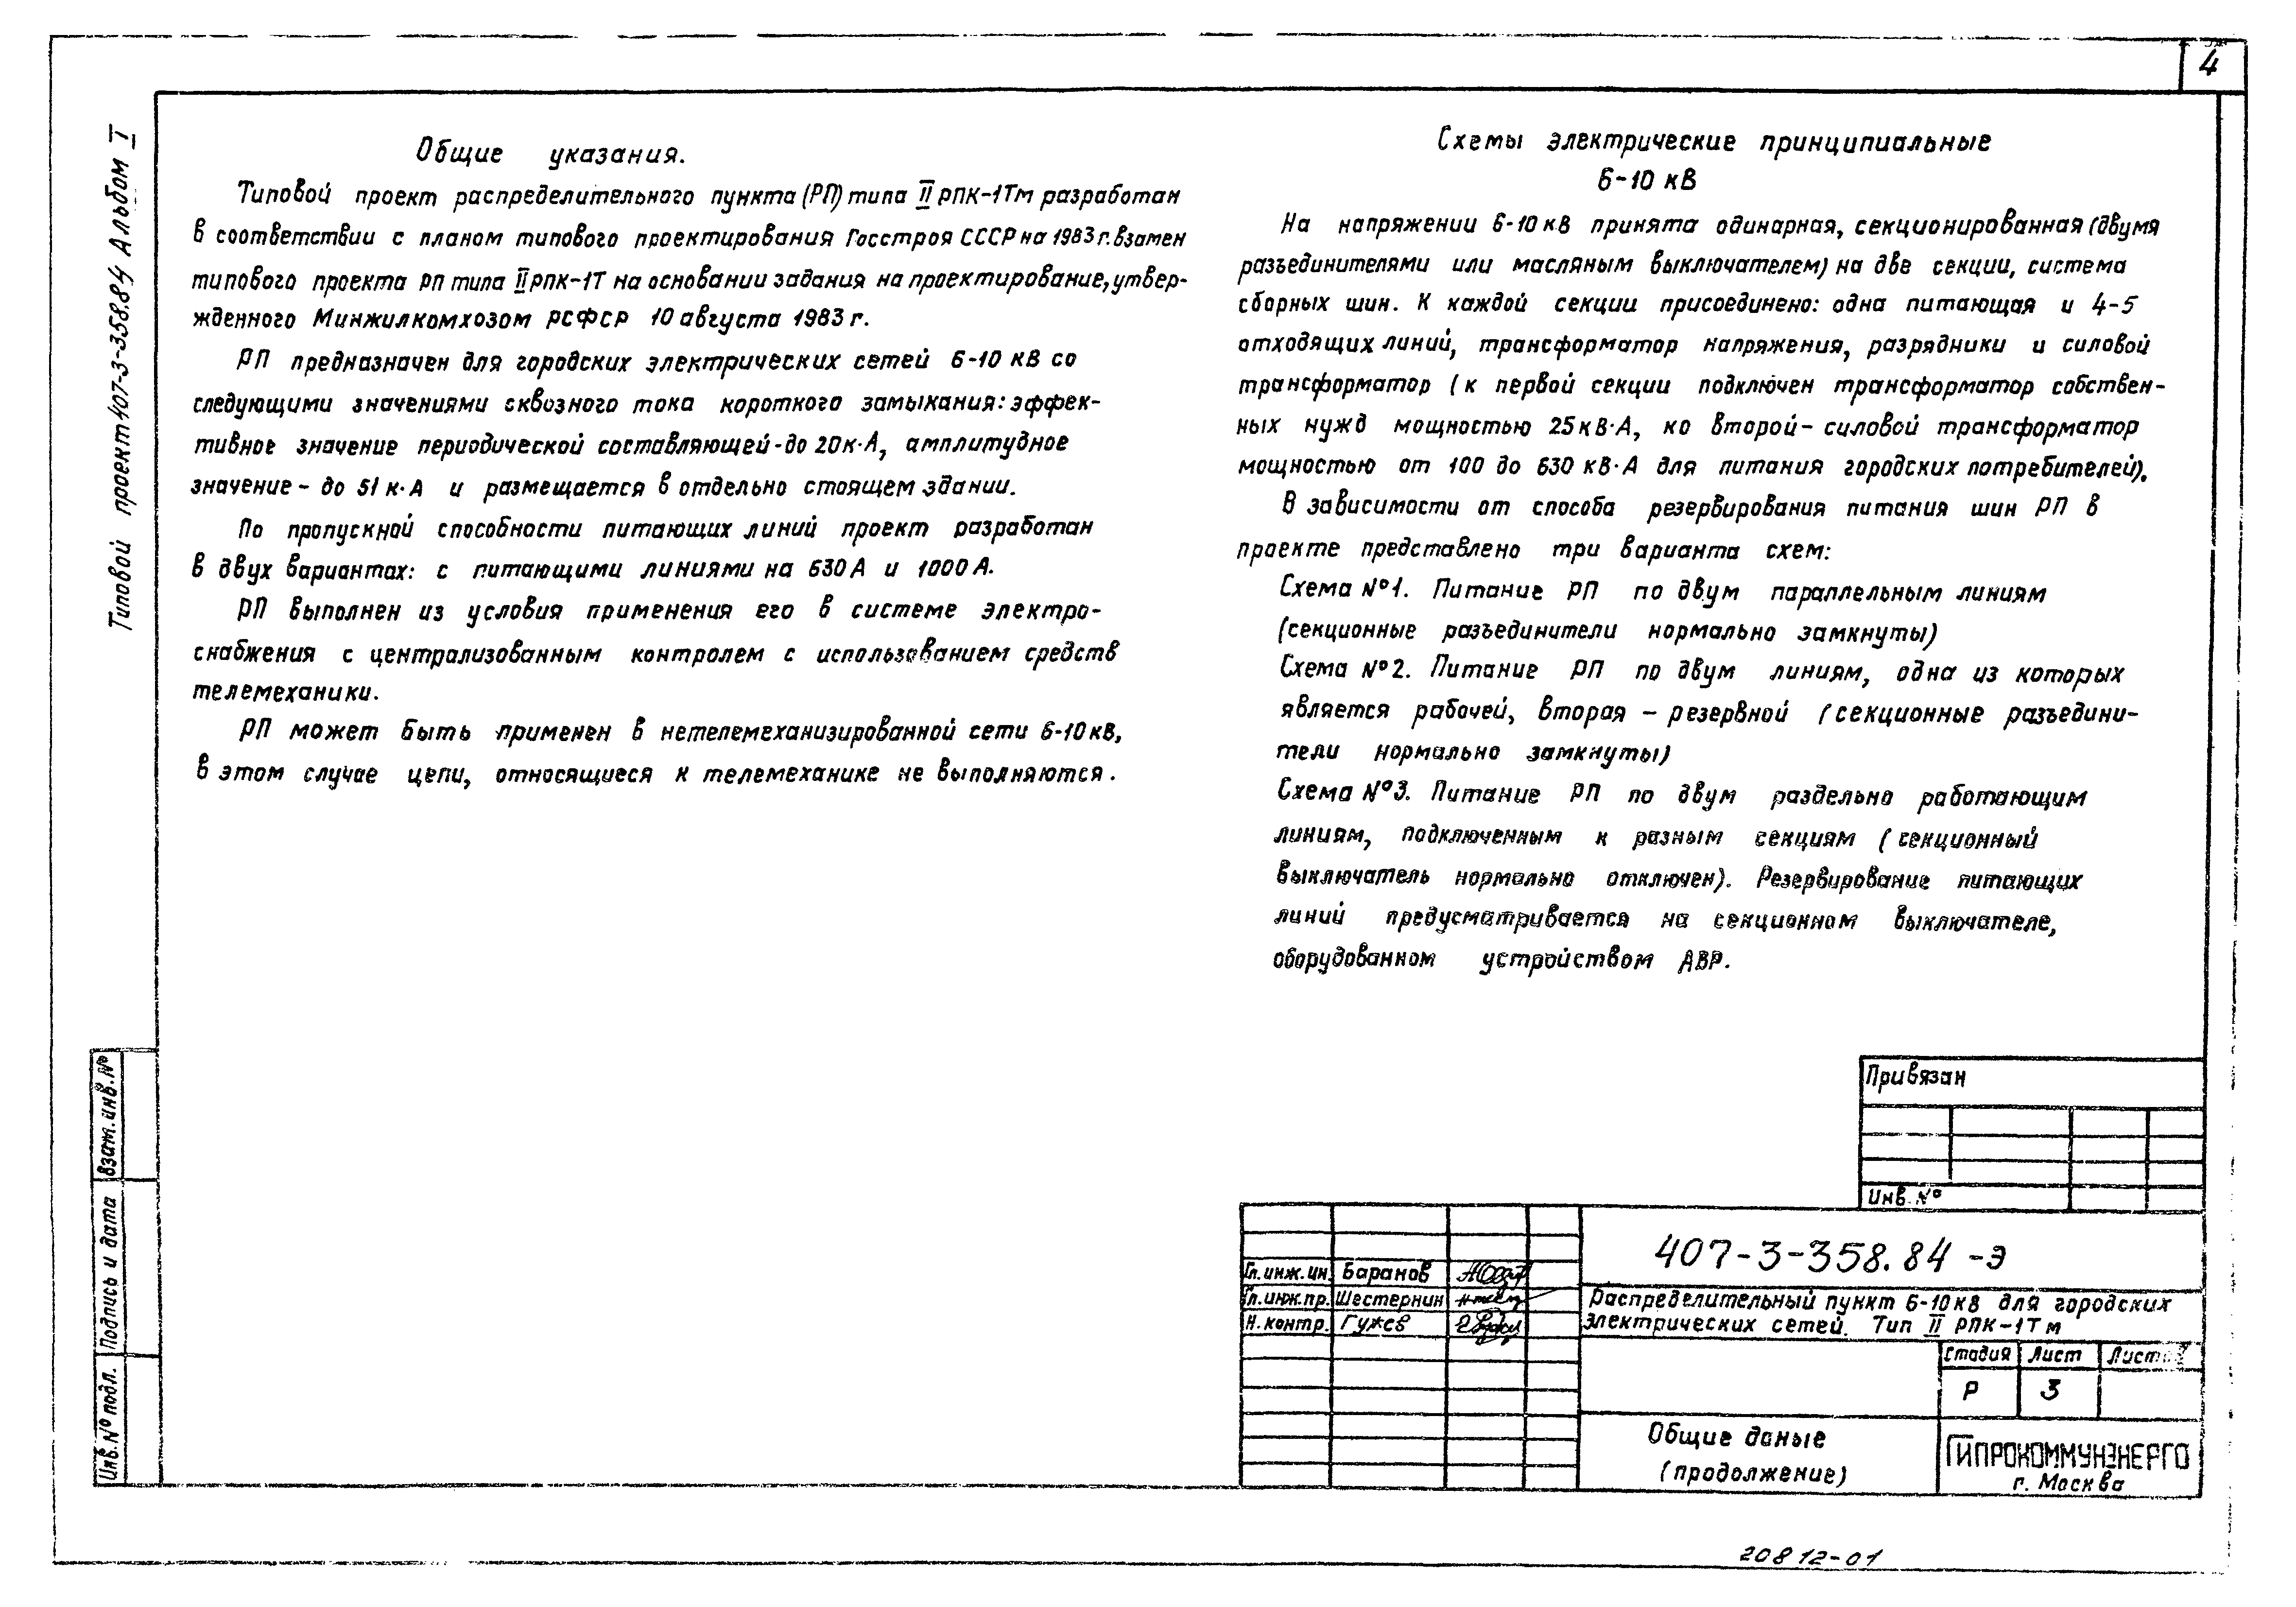 4
Типовой проект 407-3-358.84 Альбом I
Общие указания.
Типовой проект распределительного пункта (РП) типа II РПК-1Тм разработан
в соответствии с планом типового проектирования Госстроя СССР на 1983 г. взамен
типового проекта РП типа II РПК-1Т на основании задания на проектирование, утвер-
жденного Минжилкомхозом РСФСР 10 августа 1983 г.
РП предназначен для городских электрических сетей 6-10 кВ со
следующими значениями сквозного тока короткого замыкания: эффек-
тивное значение периодической составляющей - до 20 к·А, амплитудное
значение - до 51 к·А и размещается в отдельно стоящем здании.
По пропускной способности питающих линий проект разработан
в двух вариантах: с питающими линиями на 630 А и 1000 А.
РП выполнен из условия применения его в системе электро-
снабжения с централизованным контролем с использованием средств
телемеханики.
РП может быть применен в нетелемеханизированной сети 6-10 кВ,
в этом случае цепи, относящиеся к телемеханике не выполняются.
Схемы электрические принципиальные
6-10 кВ
На напряжении 6-10 кВ принята одинарная, секционированная (двумя
разъединителями или масляным выключателем) на две секции, система
сборных шин. К каждой секции присоединено: одна питающая и 4-5
отходящих линий, трансформатор напряжения, разрядники и силовой
трансформатор (к первой секции подключен трансформатор собствен-
ных нужд мощностью 25 кВ·А, ко второй - силовой трансформатор
мощностью от 100 до 630 кВ·А для питания городских потребителей).
В зависимости от способа резервирования питания шин РП в
проекте представлено три варианта схем:
Схема №1. Питание РП по двум параллельным линиям
(секционные разъединители нормально замкнуты)
Схема №2. Питание РП по двум линиям, одна из которых
является рабочей, вторая - резервной (секционные разъедини-
тели нормально замкнуты)
Схема №3. Питание РП по двум раздельно работающим
линиям, подключенным к разным секциям (секционный
выключатель нормально отключен). Резервирование питающих
линий предусматривается на секционном выключателе,
оборудованном устройством АВР.
Привязан
Инв. №
407-3-358.84 -Э
Гл. инж. ин. Баранов
Гл. инж. пр. Шестернин
Н. контр. Гужев
Распределительный пункт 6-10 кВ для городских
электрических сетей. Тип II РПК-1Тм
Стадия Лист
Р 3
Общие даные
(продолжение)
ГИПРОКОММУНЭНЕРГО
г. Москва
Взам. инв. №
Подпись и дата
Инв. № подл.
20812-01